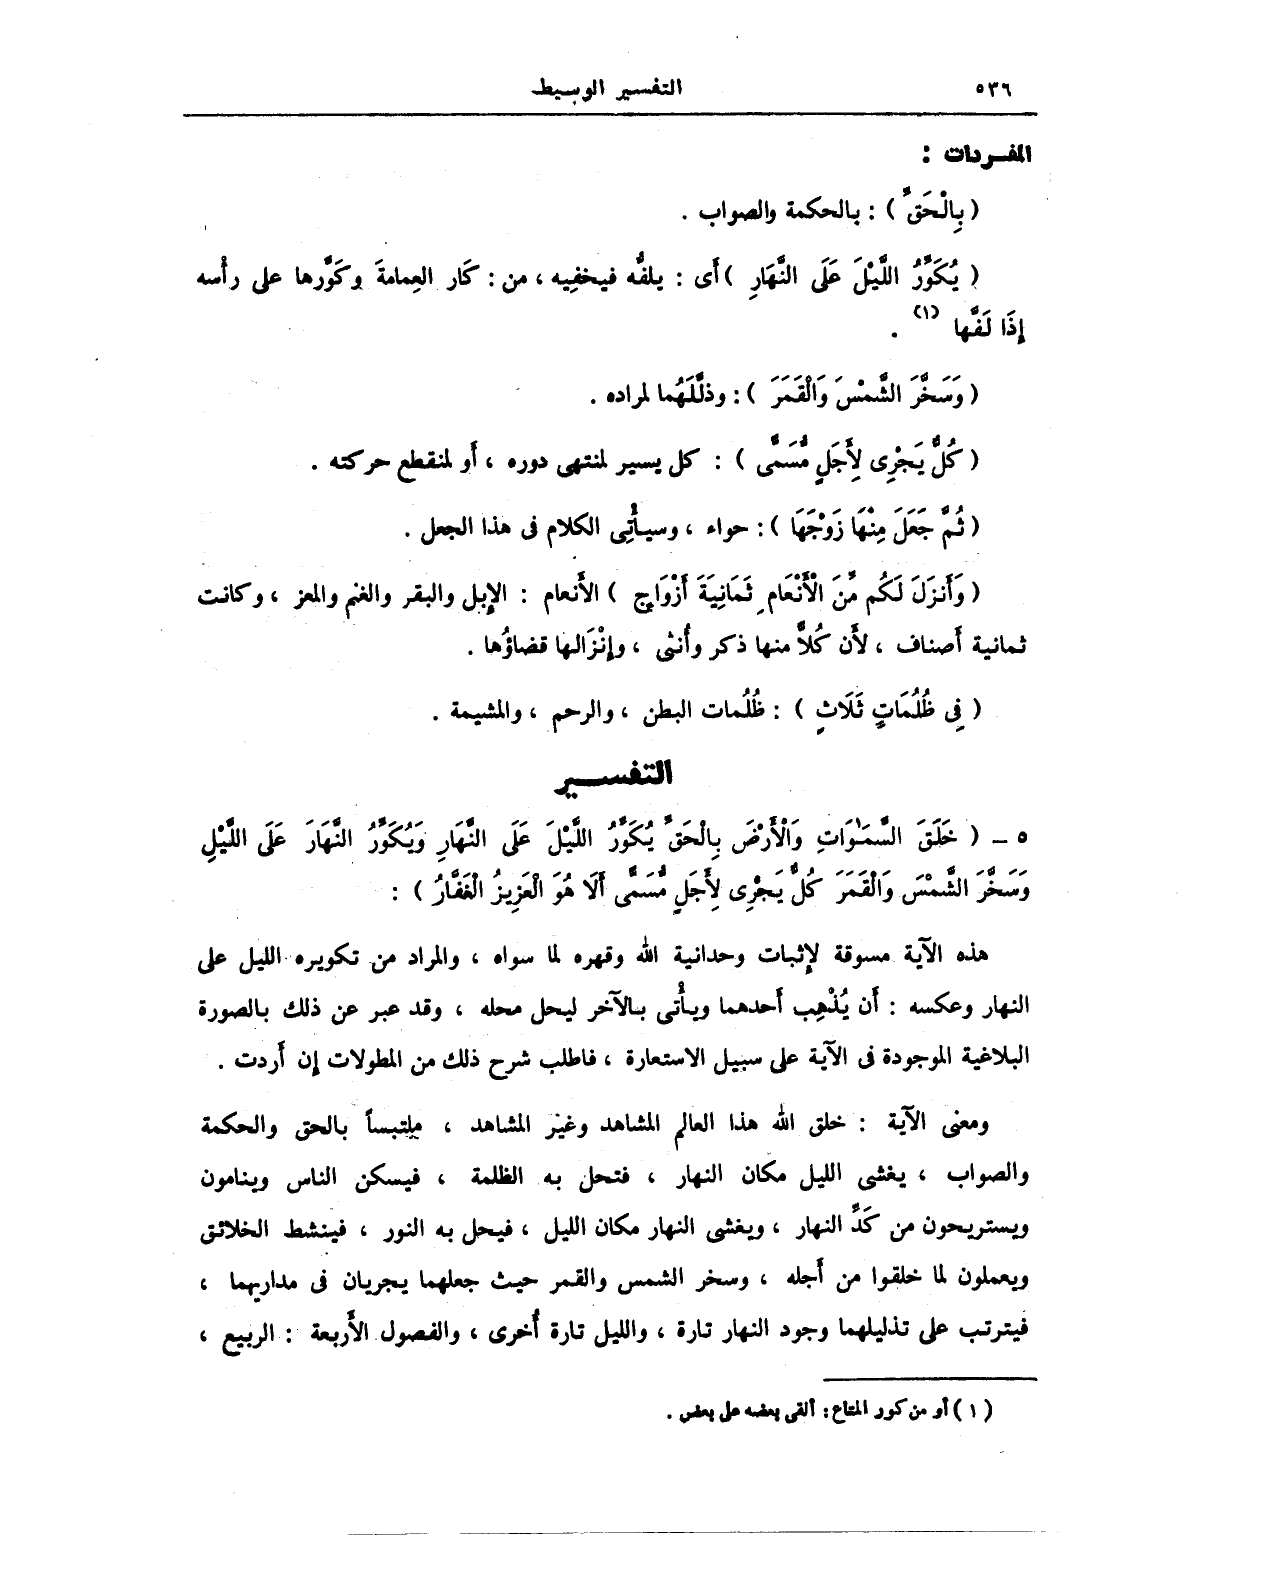 ٥٣٦
التفسير الوسيط
المفـردات :
( بِالْحَقِّ ) : بالحكمة والصواب .
( يُكَوِّرُ اللَّيْلَ عَلَى النَّهَارِ ) أَى : يلفُّه فيخفِيه ، من : كَار العِمامةَ وكَوَّرها على رأْسه
إِذَا لَفَّها (١) .
( وَسَخَّرَ الشَّمْسَ وَالْقَمَرَ ) : وذلَّلَهُما لمراده .
( كُلٌّ يَجْرِى لِأَجَلٍ مُّسَمًّى ) : كل يسير لمنتهى دوره ، أَو لمنقطع حركته .
( ثُمَّ جَعَلَ مِنْهَا زَوْجَهَا ) : حواء ، وسيأْتِى الكلام فى هذا الجعل .
( وَأَنزَلَ لَكُم مِّنَ الْأَنْعَامِ ثَمَانِيَةَ أَزْوَاجٍ ) الأَنعام : الإِبل والبقر والغنم والمعز ، وكانت
ثمانية أَصناف ، لأَن كُلاًّ منها ذكر وأُنثى ، وإِنْزَالها قضاؤُها .
( فِى ظُلُمَاتٍ ثَلَاثٍ ) : ظُلُمات البطن ، والرحم ، والمشيمة .
التفســـير
٥ – ( خَلَقَ السَّمَٰوَاتِ وَالْأَرْضَ بِالْحَقِّ يُكَوِّرُ اللَّيْلَ عَلَى النَّهَارِ وَيُكَوِّرُ النَّهَارَ عَلَى اللَّيْلِ
وَسَخَّرَ الشَّمْسَ وَالْقَمَرَ كُلٌّ يَجْرِى لِأَجَلٍ مُّسَمًّى أَلَا هُوَ الْعَزِيزُ الْغَفَّارُ ) :
هذه الآية مسوقة لإِثبات وحدانية الله وقهره لما سواه ، والمراد من تكويره الليل على
النهار وعكسه : أَن يُذْهِب أَحدهما ويأْتى بالآخر ليحل محله ، وقد عبر عن ذلك بالصورة
البلاغية الموجودة فى الآية على سبيل الاستعارة ، فاطلب شرح ذلك من المطولات إِن أَردت .
ومعنى الآية : خلق الله هذا العالم المشاهد وغير المشاهد ، ملتبساً بالحق والحكمة
والصواب ، يغشى الليل مكان النهار ، فتحل به الظلمة ، فيسكن الناس وينامون
ويستريحون من كَدِّ النهار ، ويغشى النهار مكان الليل ، فيحل به النور ، فينشط الخلائق
ويعملون لما خلقوا من أَجله ، وسخر الشمس والقمر حيث جعلهما يجريان فى مداريهما ،
فيترتب على تذليلهما وجود النهار تارة ، والليل تارة أُخرى ، والفصول الأَربعة : الربيع ،
( ١ ) أو من كور المتاع : ألقى بعضه على بعض .